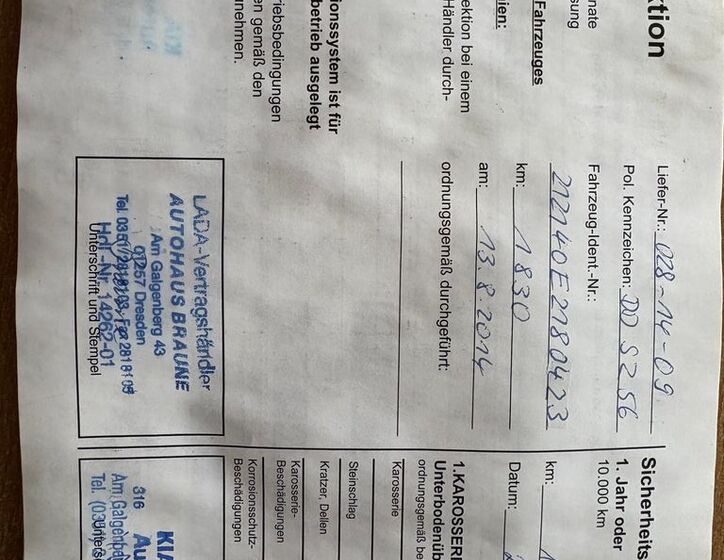 ktion
nate
sung
Fahrzeuges
ien:
ektion bei einem
Händler durch-
ionssystem ist für
betrieb ausgelegt
riebsbedingungen
en gemäß den
unehmen.
Liefer-Nr.: 028-14-09
Pol. Kennzeichen: DD SZ 56
Fahrzeug-Ident.-Nr.:
212140E2180423
km: 1830
am: 13.8.2014
ordnungsgemäß durchgeführt:
LADA-Vertragshändler
AUTOHAUS BRAUNE
Am Galgenberg 43
01257 Dresden
Tel. 0351 Fax 281 81 09
Hdl.-Nr. 14262-01
Unterschrift und Stempel
Sicherheits
1. Jahr oder
10.000 km
km:
Datum:
1.KAROSSERI
Unterbodenüb
ordnungsgemäß be
Karosserie
Steinschlag
Kratzer, Dellen
Karosserie-
Beschädigungen
Korrosionsschutz-
Beschädigungen
KIA
Au
316
Am Galgenbe
Tel. (03
Unters